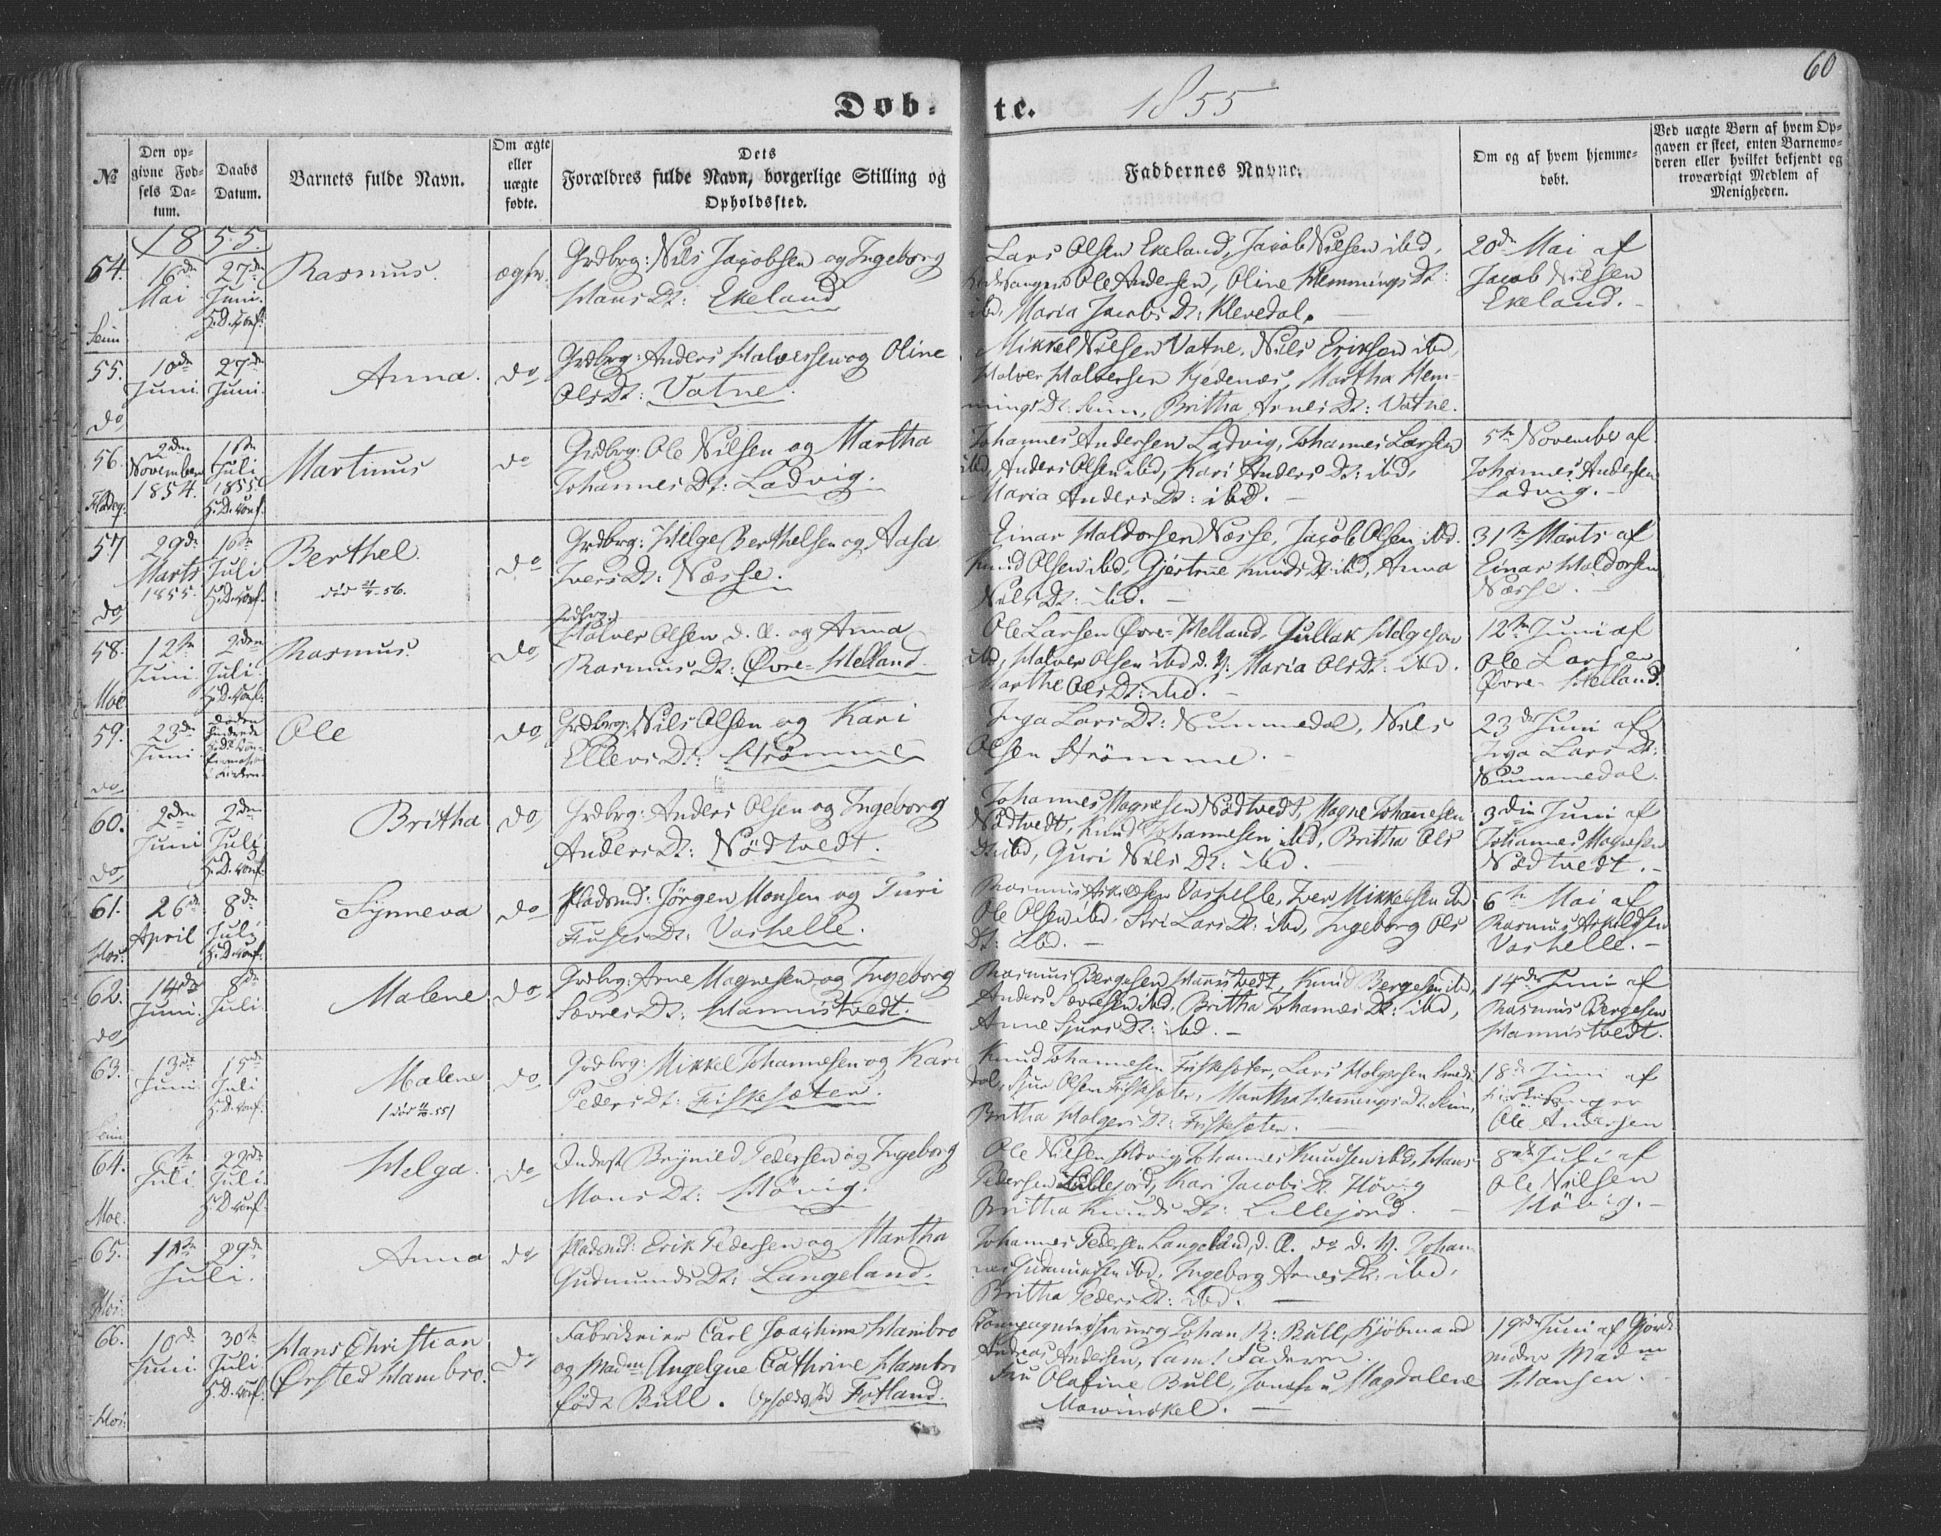 60
Døb-te. 1855
№
Den op-
givne Fød-
sels Da-
tum.
Daabs
Datum.
Barnets fulde Navn.
Om ægte
eller
uægte
fødte.
Dets
Forældres fulde Navn, borgerlige Stilling og
Opholdssted.
Faddernes Navne.
Om og af hvem hjemme-
døbt.
Ved uægte Børn af hvem Op-
gaven er skeet, enten Barnemo-
deren eller hvilket bekjendt og
troværdigt Medlem af
Menigheden.
1855.
54.
16de
Mai
27de
Juni.
H.D. conf.
Seim
Rasmus.
ægte.
Grdbrg: Nils Jacobsen og Ingeborg
Hans Dt: Ekeland
Lars Olsen Ekeland, Jacob Nilsen ibd,
Ole Andersen, Oline Hemmings Dt:
ibd, Maria Jacobs Dt: Klevedal.
20de Mai af
Jacob Nilsen
Ekeland.
55.
10de
Juni
27de
Juni.
do,
Anna.
do,
Grdbrg: Anders Halversen og Oline
Ols Dt: Vatne.
Mikkel Nilsen Vatne, Nils Eriksen ibd,
Halver Halversen Kjedenæs, Martha Hem-
mings Dt: Seim, Britha Arnes Dt: Vatne.
56.
2den
November
1854.
1ste
Juli
1855.
H.D. conf.
Martinus
do
Grdbrg: Ole Nilsen og Martha
Johannes Dt: Ladvig.
Johannes Andersen Ladvig, Johannes Larsen
ibd, Anders Olsen ibd, Kari Anders Dt: ibd,
Maria Anders Dt: ibd.
5te November af
Johannes Andersen
Ladvig.
57
29de
Marts
1855.
1ste
Juli
H.D. conf.
do,
Berthel.
do
Grdbrg: Helge Berthelsen og Aasa
Ivers Dt: Næsse.
Einar Haldorsen Næsse, Jacob Olsen ibd.
Knud Olsen ibd, Gjertrue Knuds Dt: ibd, Anna
Nils Dt: ibd.
31te Marts af
Einar Haldorsen
Næsse.
58.
12te
Juni
2den
Juli.
H.D. conf.
Moe
Rasmus.
do,
Grdbrg:
Halver Olsen d. Æ. og Anna
Rasmus Dt: Øvre-Helland.
Ole Larsen Øvre-Helland, Gullak Helgesen
ibd, Halver Olsen ibd d. Y. Maria Ols Dt: ibd.
Marthe Ols Dt: ibd.
12te Juni af
Ole Larsen
Øvre-Helland.
59.
23de
Juni
do,
Ole
do,
Grdbrg: Nils Olsen og Kari
Ellevs Dt: Strømme
Inga Lars Dt: Nummedal, Nils
Olsen Strømme.
23de Juni af
Inga Lars Dt:
Nummedal.
60.
2den
Juni
2den
Juli
H.D. conf.
do,
Britha
do,
Grdbrg: Anders Olsen og Ingeborg
Anders Dt: Nødtvedt.
Johannes Magnesen Nødtvedt, Magne Johannesen
Nødtvedt, Knud Johannesen ibd, Britha Ols
Dt: ibd, Guri Nils Dt: ibd.
3die Juni af
Johannes Magnesen
Nødtvedt.
61.
26de
April
8de
Juli
H.D. conf.
Hos:
Synneva
do
Pladsmd: Jørgen Monsen og Turi
Fuses Dt: Vashelle.
Rasmus Askildsen Vashelle, Iver Mikkelsen ibd
Ole Olsen ibd, Siri Lars Dt: ibd, Ingeborg Ols
Dt: ibd.
6te Mai af
Rasmus Askildsen
Vashelle.
62.
14de
Juni.
8de
Juli
do,
Malene
do
Grdbrg: Arne Magnesen og Ingeborg
Sævres Dt: Hannistvedt.
Rasmus Bergesen Hannistvedt, Knud Bergesen ibd,
Anders Sævresen ibd, Britha Johannes Dt: ibd,
Anne Sjurs Dt: ibd.
14de Juni af
Rasmus Bergesen
Hannistvedt.
63.
13de
Juni
15de
Juli
H.D. conf.
Seim
Malene
do
Grdbrg: Mikkel Johannesen og Kari
Peders Dt: Fiskesæter.
Knud Johannesen Fiskesæter, Lars Holgersen
Sjur Olsen Fiskesæter, Martha Hemings Dt: Seim,
Britha Holgers Dt: Fiskesæter.
18de Juni af
Ole Andersen
64.
6te
Juli
22de
Juli.
H.D. conf.
Moe.
Helga.
do
Inderst Brynild Pedersen og Ingeborg
Mons Dt: Høvig.
Ole Nilsen Høvig, Johannes Knudsen ibd, Hans
Pedersen Lillejord, Kari Jacobs Dt: Høvig
Britha Knuds Dt: Lillejord.
8de Juli af
Ole Nilsen
Høvig.
65.
Juli.
29de
Hos:
Anna
do,
Pladsmd: Erik Pedersen og Martha
Gudmunds Dt: Langeland.
Johannes Pedersen Langeland, d. Æ. do d. Y. Johan-
nes Gudmundsen ibd, Ingeborg Arnes Dt: ibd,
Britha Peders Dt: ibd.
66.
10de
Juni
30te
Juli
H.D. conf.
Hos:
Hans Christian
Ørsted Hambro.
do,
Fabrikeier Carl Joachim Hambro
og Madm Angelque Cathrine Hambro
født Bull. Opholdsstd Fotland.
Johan R: Bull, Kjøbmand
Andreas Andersen, saml Faderen.
Fru Olafine Bull, Jomfru Magdalene
Mowinckel.
19de Juni af Gjord-
moder Madm
Hansen.